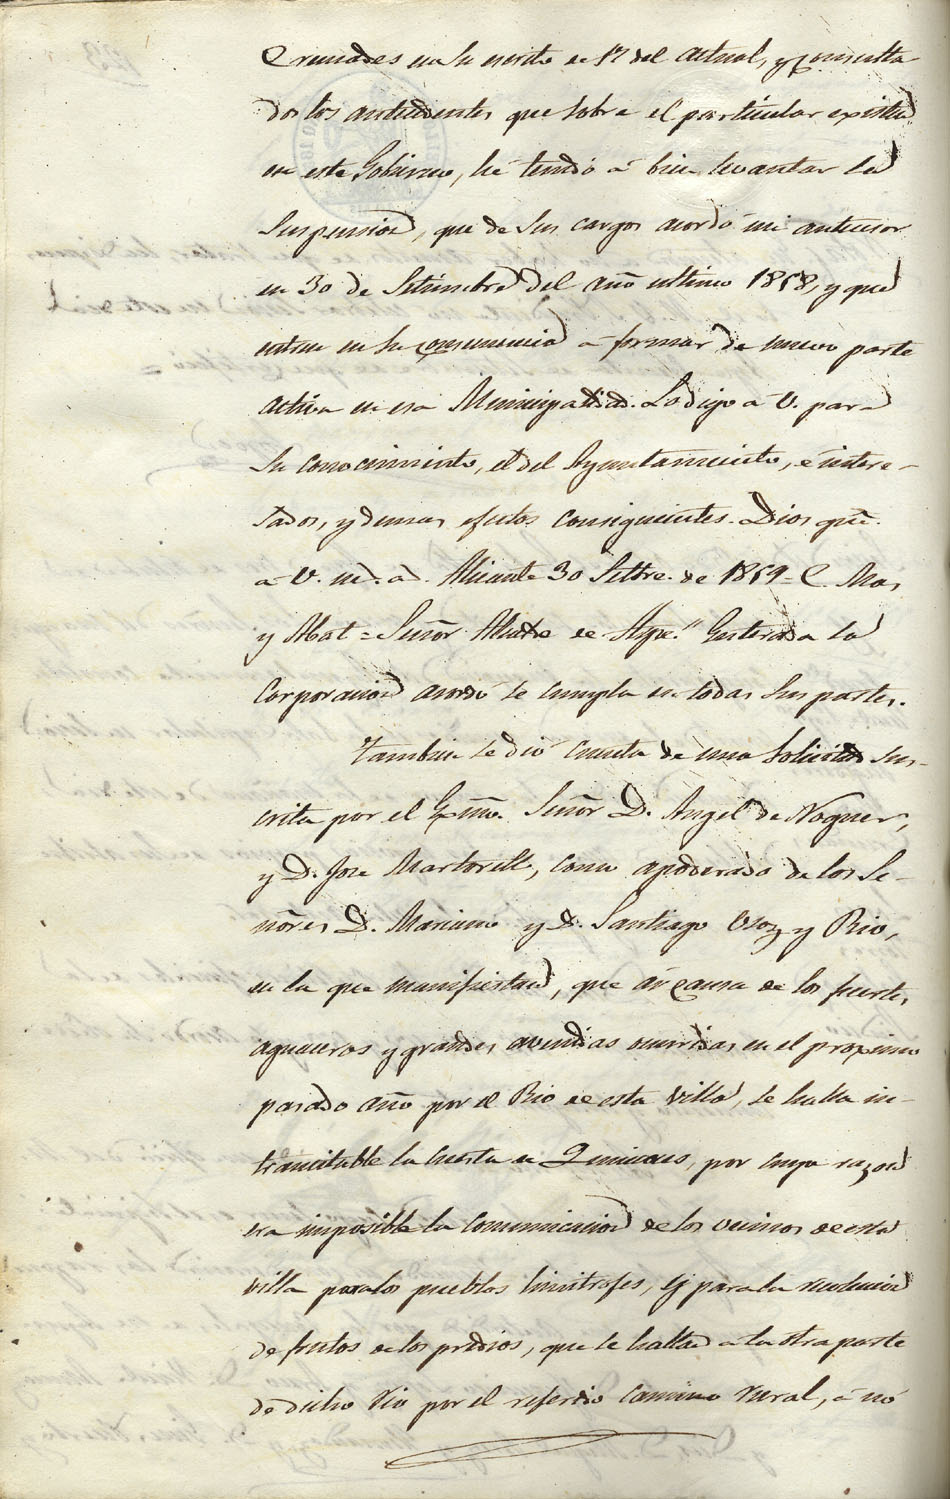 en su escrito de 17 del actual, y consulta
dos los antecedentes que sobre el particular existen
en este Gobierno, he tenido á bien levantar la
suspension, que de sus cargos acordó mi antecesor
en 30 de Setiembre del año ultimo 1858, y que
entren en su consecuencia á formar de nuevo parte
activa en esa Municipalidad. Lo digo a V. para
su conocimiento, el del Ayuntamiento, é intere-
sados, y demas efectos consiguientes. Dios gue.
a V. m.s a.s Alicante 30 Setbre. de 1859 = C. Mas
y Abat = Señor Alcalde de Aspe." Enterada la
Corporacion acordó se cumpla en todas sus partes.
Tambien se dió cuenta de una solicitud sus-
crita por el Exmo. Señor D. Angel de Noguer,
y D. Jose Martorell, como apoderado de los Se-
ñores D. Mariano y D. Santiago Usoz y Rio,
en la que manifiestan, que á causa de los fuertes
aguaceros y grandes avenidas ocurridas en el proximo
pasado año por el Rio de esta Villa, se halla in-
transitable la cuesta de, por cuya razon
era imposible la comunicacion de los vecinos de esta
villa para los pueblos limitrofes, y para la
de frutos de los predios, que se hallan a la otra parte
de dicho rio por el referido camino rural, á no